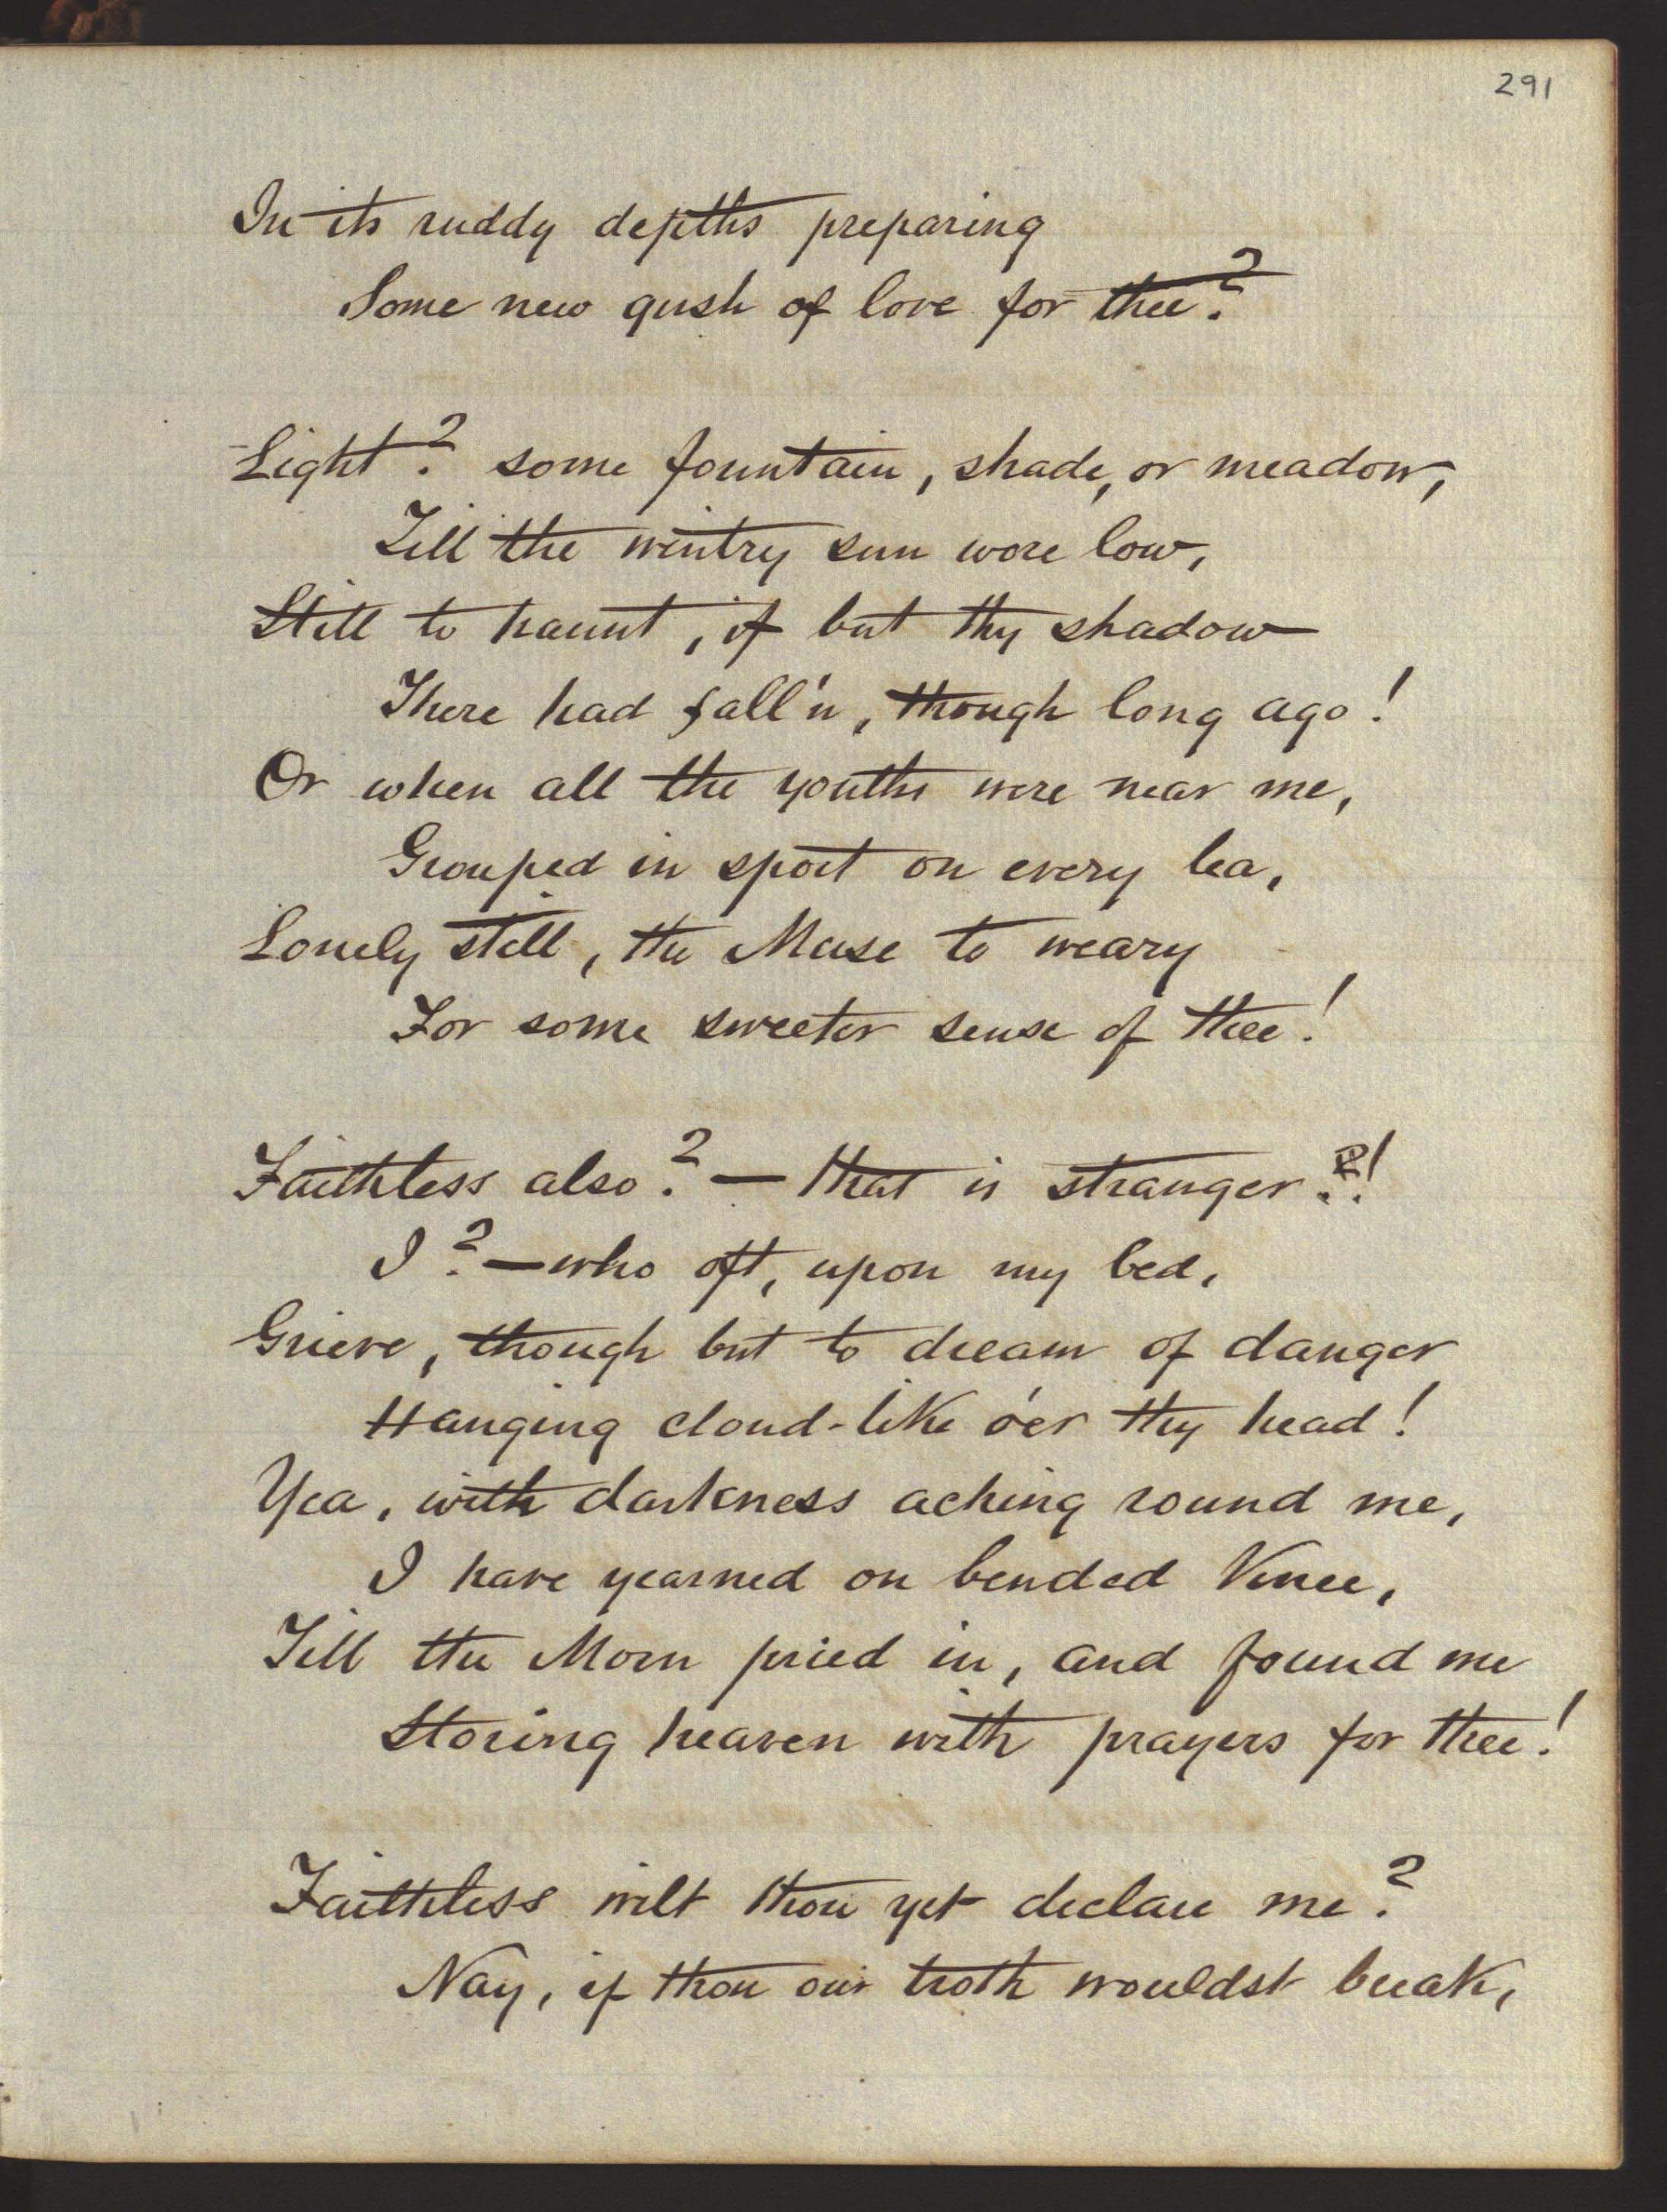 291
In its ruddy depths preparing
Some new gush of love for thee?
Light? some fountain, shade, or meadow,
Till the wintry sun wore low,
Still to haunt, if but thy shadow
There had fall'n, though long ago!
Or when all the youths were near me,
Grouped in sport on every lea,
Lonely still, the Muse to weary
For some sweeter sense of thee!
Faithless also? — that is stranger!
I? — who oft, upon my bed,
Grieve, though but to dream of danger
Hanging cloud-like o'er thy head!
Yea, with darkness aching round me,
I have yearned on bended knee,
Till the Morn pried in, and found me
Storing heaven with prayers for thee!
Faithless wilt thou yet declare me?
Nay, if thou our troth wouldst break,